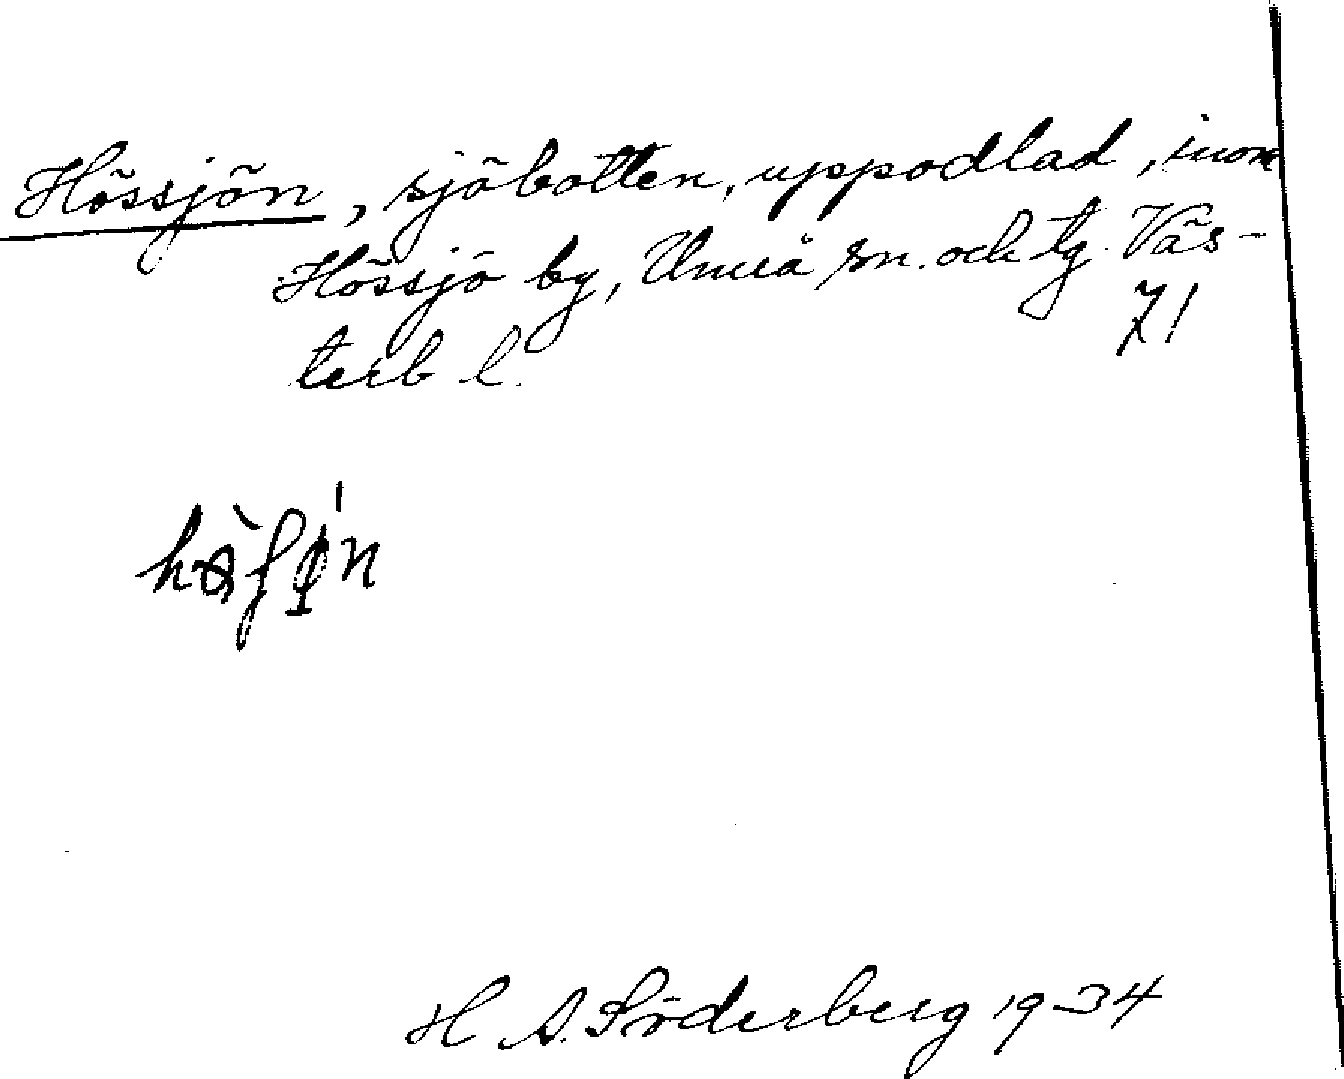 Hössjön, sjöbotten, uppodlad, inom
Hössjö by, Umeå sn. och tg. Väs-
terb l.
71
H A. Söderberg 1934